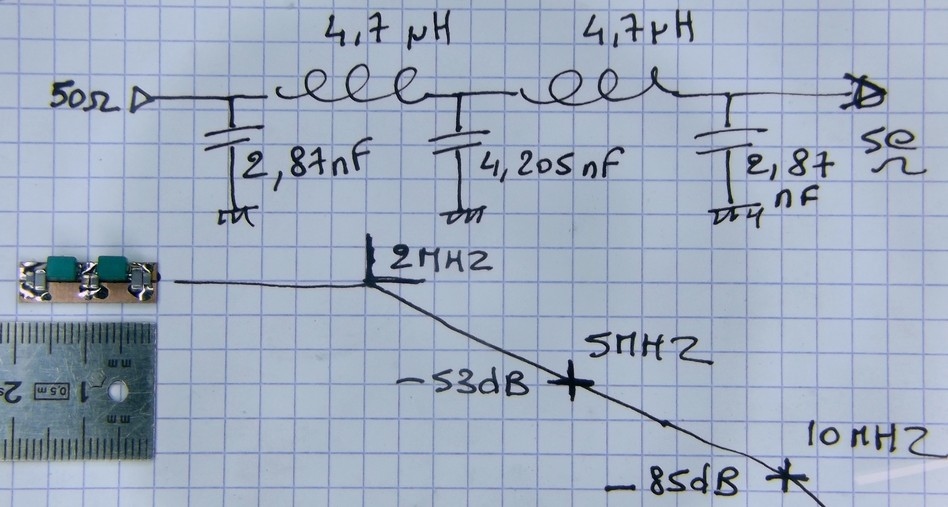 4,7 µH 4,7µH
50Ω 50
Ω
2,87nF 4,205nF 2,87
nF
2MHZ
5MHZ
-53dB
10MHZ
-85dB
mm
2 0,5 m 1
mm